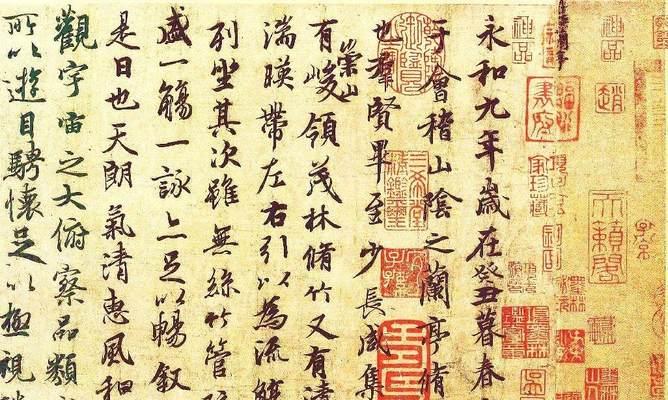 神品
趙
天籟閣
永和九年歲在癸丑暮春
于會稽山陰之蘭亭脩
也羣賢畢至少長咸集
有崇山峻領茂林脩竹又有清
湍暎帶左右引以為流觴
列坐其次雖無絲竹管
盛一觴一詠亦足以暢叙
是日也天朗氣清惠風和
觀宇宙之大俯察品類
所以遊目騁懷足以極視